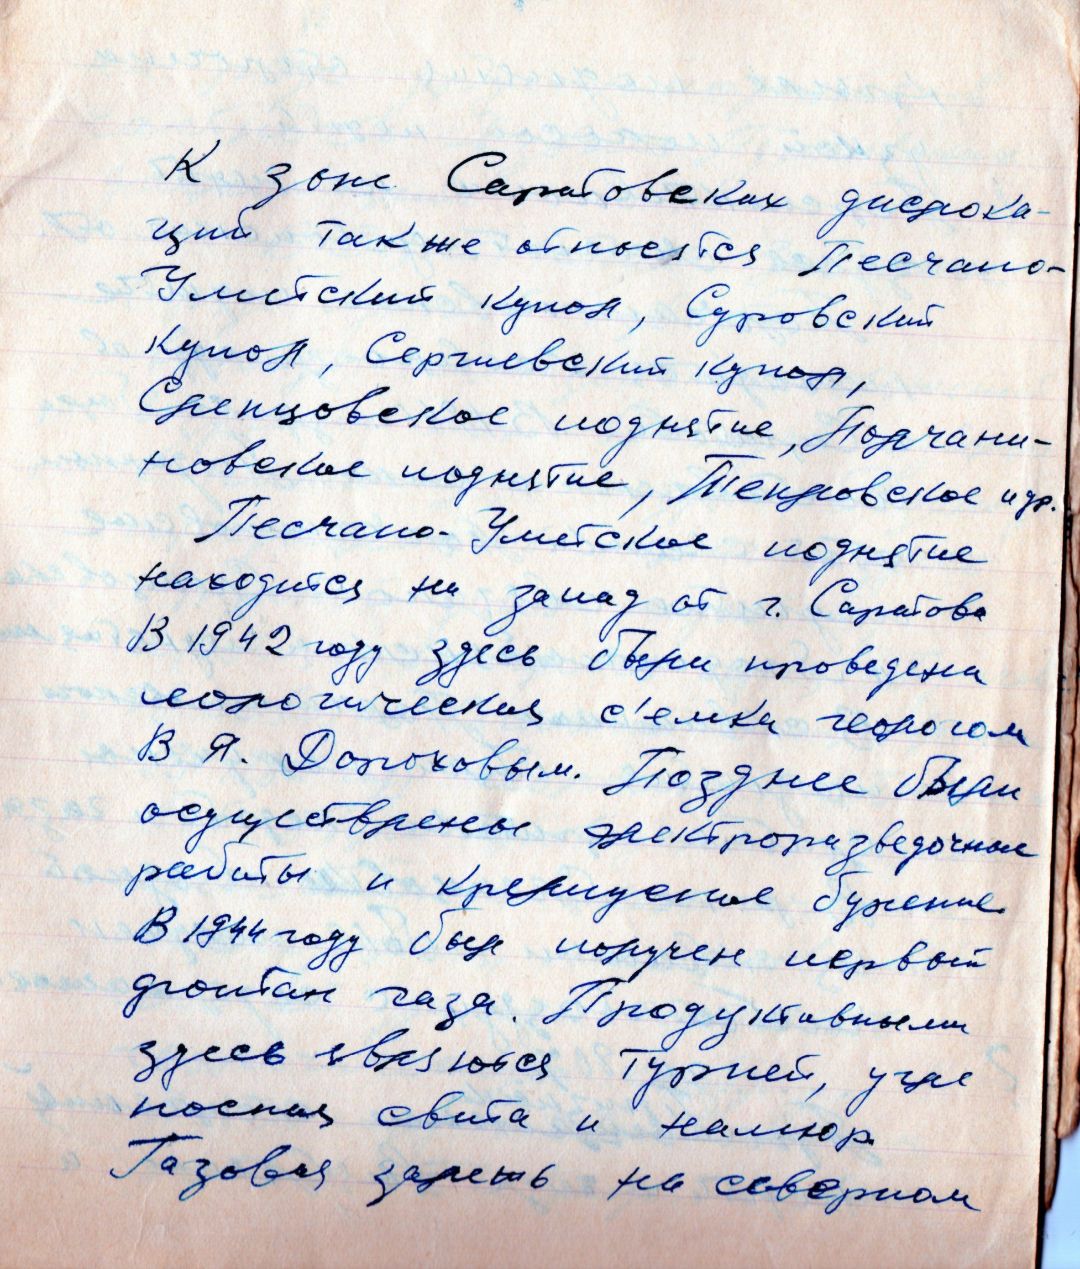 К зоне Саратовских дислока-
ций также относятся Песчано-
Уметский купол, Суровский
купол, Сергиевский купол,
Слепцовское поднятие, Полчани-
новское поднятие, Тепловское и др.
Песчано-Уметское поднятие
находится на запад от г. Саратова
В 1942 году здесь были проведена
геологическая с'емка геологом
В Я. Дороховым. Позднее были
осуществлены электроразведочные
работы и крелиусное бурение.
В 1944 году был получен первый
фонтан газа. Продуктивными
здесь являются турней, угле
носная свита и намюр.
Газовая залежь на северном